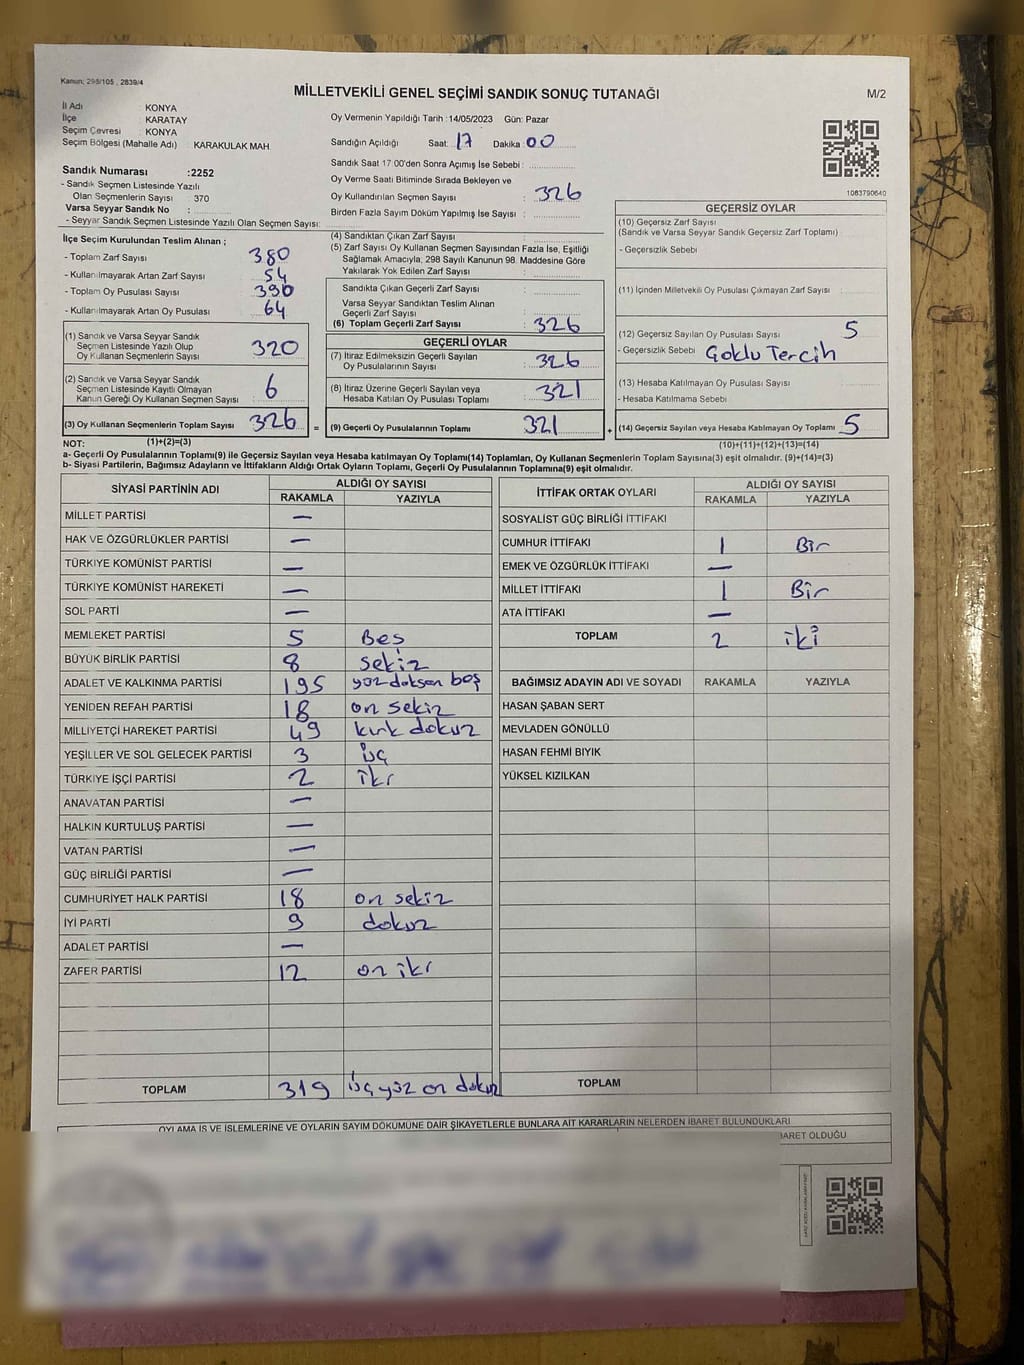 Kanun; 298/105 , 2839/4
MİLLETVEKİLİ GENEL SEÇİMİ SANDIK SONUÇ TUTANAĞI
M/2
İl Adı KONYA
İlçe KARATAY
Seçim Çevresi KONYA
Seçim Bölgesi (Mahalle Adı) KARAKULAK MAH
Sandık Numarası :2252
- Sandık Seçmen Listesinde Yazılı
Olan Seçmenlerin Sayısı 370
Varsa Seyyar Sandık No :
- Seyyar Sandık Seçmen Listesinde Yazılı Olan Seçmen Sayısı:
İlçe Seçim Kurulundan Teslim Alınan ;
- Toplam Zarf Sayısı 380
- Kullanılmayarak Artan Zarf Sayısı 54
- Toplam Oy Pusulası Sayısı 390
- Kullanılmayarak Artan Oy Pusulası 64
(1) Sandık ve Varsa Seyyar Sandık
Seçmen Listesinde Yazılı Olup
Oy Kullanan Seçmenlerin Sayısı 320
(2) Sandık ve Varsa Seyyar Sandık
Seçmen Listesinde Kayıtlı Olmayan
Kanun Gereği Oy Kullanan Seçmen Sayısı : 6
(3) Oy Kullanan Seçmenlerin Toplam Sayısı 326
Oy Vermenin Yapıldığı Tarih :14/05/2023 Gün: Pazar
Sandığın Açıldığı Saat: 17 Dakika: 00
Sandık Saat 17:00'den Sonra Açılmış İse Sebebi :
Oy Verme Saati Bitiminde Sırada Bekleyen ve
Oy Kullandırılan Seçmen Sayısı : 326
Birden Fazla Sayım Döküm Yapılmış İse Sayısı :
(4) Sandıktan Çıkan Zarf Sayısı :
(5) Zarf Sayısı Oy Kullanan Seçmen Sayısından Fazla İse, Eşitliği
Sağlamak Amacıyla, 298 Sayılı Kanunun 98. Maddesine Göre
Yakılarak Yok Edilen Zarf Sayısı :
Sandıkta Çıkan Geçerli Zarf Sayısı :
Varsa Seyyar Sandıktan Teslim Alınan
Geçerli Zarf Sayısı :
(6) Toplam Geçerli Zarf Sayısı : 326
GEÇERLİ OYLAR
(7) İtiraz Edilmeksizin Geçerli Sayılan
Oy Pusulalarının Sayısı : 326
(8) İtiraz Üzerine Geçerli Sayılan veya
Hesaba Katılan Oy Pusulası Toplamı : 321
= (9) Geçerli Oy Pusulalarının Toplamı 321 +
1083790640
GEÇERSİZ OYLAR
(10) Geçersiz Zarf Sayısı
(Sandık ve Varsa Seyyar Sandık Geçersiz Zarf Toplamı) :
- Geçersizlik Sebebi
(11) İçinden Milletvekili Oy Pusulası Çıkmayan Zarf Sayısı :
(12) Geçersiz Sayılan Oy Pusulası Sayısı 5
- Geçersizlik Sebebi Çoklu Tercih
(13) Hesaba Katılmayan Oy Pusulası Sayısı :
- Hesaba Katılmama Sebebi
(14) Geçersiz Sayılan veya Hesaba Katılmayan Oy Toplamı 5
NOT: (1)+(2)=(3)
(10)+(11)+(12)+(13)=(14)
a- Geçerli Oy Pusulasının Toplamı(9) ile Geçersiz Sayılan veya Hesaba katılmayan Oy Toplamı(14) Toplamları, Oy Kullanan Seçmenlerin Toplam Sayısına(3) eşit olmalıdır. (9)+(14)=(3)
b- Siyasi Partilerin, Bağımsız Adayların ve İttifakların Aldığı Ortak Oyların Toplamı, Geçerli Oy Pusulalarının Toplamına(9) eşit olmalıdır.
SİYASİ PARTİNİN ADI ALDIĞI OY SAYISI
RAKAMLA YAZIYLA
MİLLET PARTİSİ —
HAK VE ÖZGÜRLÜKLER PARTİSİ —
TÜRKİYE KOMÜNİST PARTİSİ —
TÜRKİYE KOMÜNİST HAREKETİ —
SOL PARTİ —
MEMLEKET PARTİSİ 5 Beş
BÜYÜK BİRLİK PARTİSİ 8 sekiz
ADALET VE KALKINMA PARTİSİ 195 yüz doksan beş
YENİDEN REFAH PARTİSİ 18 on sekiz
MİLLİYETÇİ HAREKET PARTİSİ 49 kırk dokuz
YEŞİLLER VE SOL GELECEK PARTİSİ 3 üç
TÜRKİYE İŞÇİ PARTİSİ 2 iki
ANAVATAN PARTİSİ —
HALKIN KURTULUŞ PARTİSİ —
VATAN PARTİSİ —
GÜÇ BİRLİĞİ PARTİSİ —
CUMHURİYET HALK PARTİSİ 18 on sekiz
İYİ PARTİ 9 dokuz
ADALET PARTİSİ —
ZAFER PARTİSİ 12 on iki
TOPLAM 319 üç yüz on dokuz
İTTİFAK ORTAK OYLARI ALDIĞI OY SAYISI
RAKAMLA YAZIYLA
SOSYALİST GÜÇ BİRLİĞİ İTTİFAKI
CUMHUR İTTİFAKI 1 Bir
EMEK VE ÖZGÜRLÜK İTTİFAKI —
MİLLET İTTİFAKI 1 Bir
ATA İTTİFAKI —
TOPLAM 2 iki
BAĞIMSIZ ADAYIN ADI VE SOYADI RAKAMLA YAZIYLA
HASAN ŞABAN SERT
MEVLADEN GÖNÜLLÜ
HASAN FEHMİ BIYIK
YÜKSEL KIZILKAN
TOPLAM
OYLAMA İŞ VE İŞLEMLERİNE VE OYLARIN SAYIM DÖKÜMÜNE DAİR ŞİKAYETLERLE BUNLARA AİT KARARLARIN NELERDEN İBARET BULUNDUKLARI
İBARET OLDUĞU